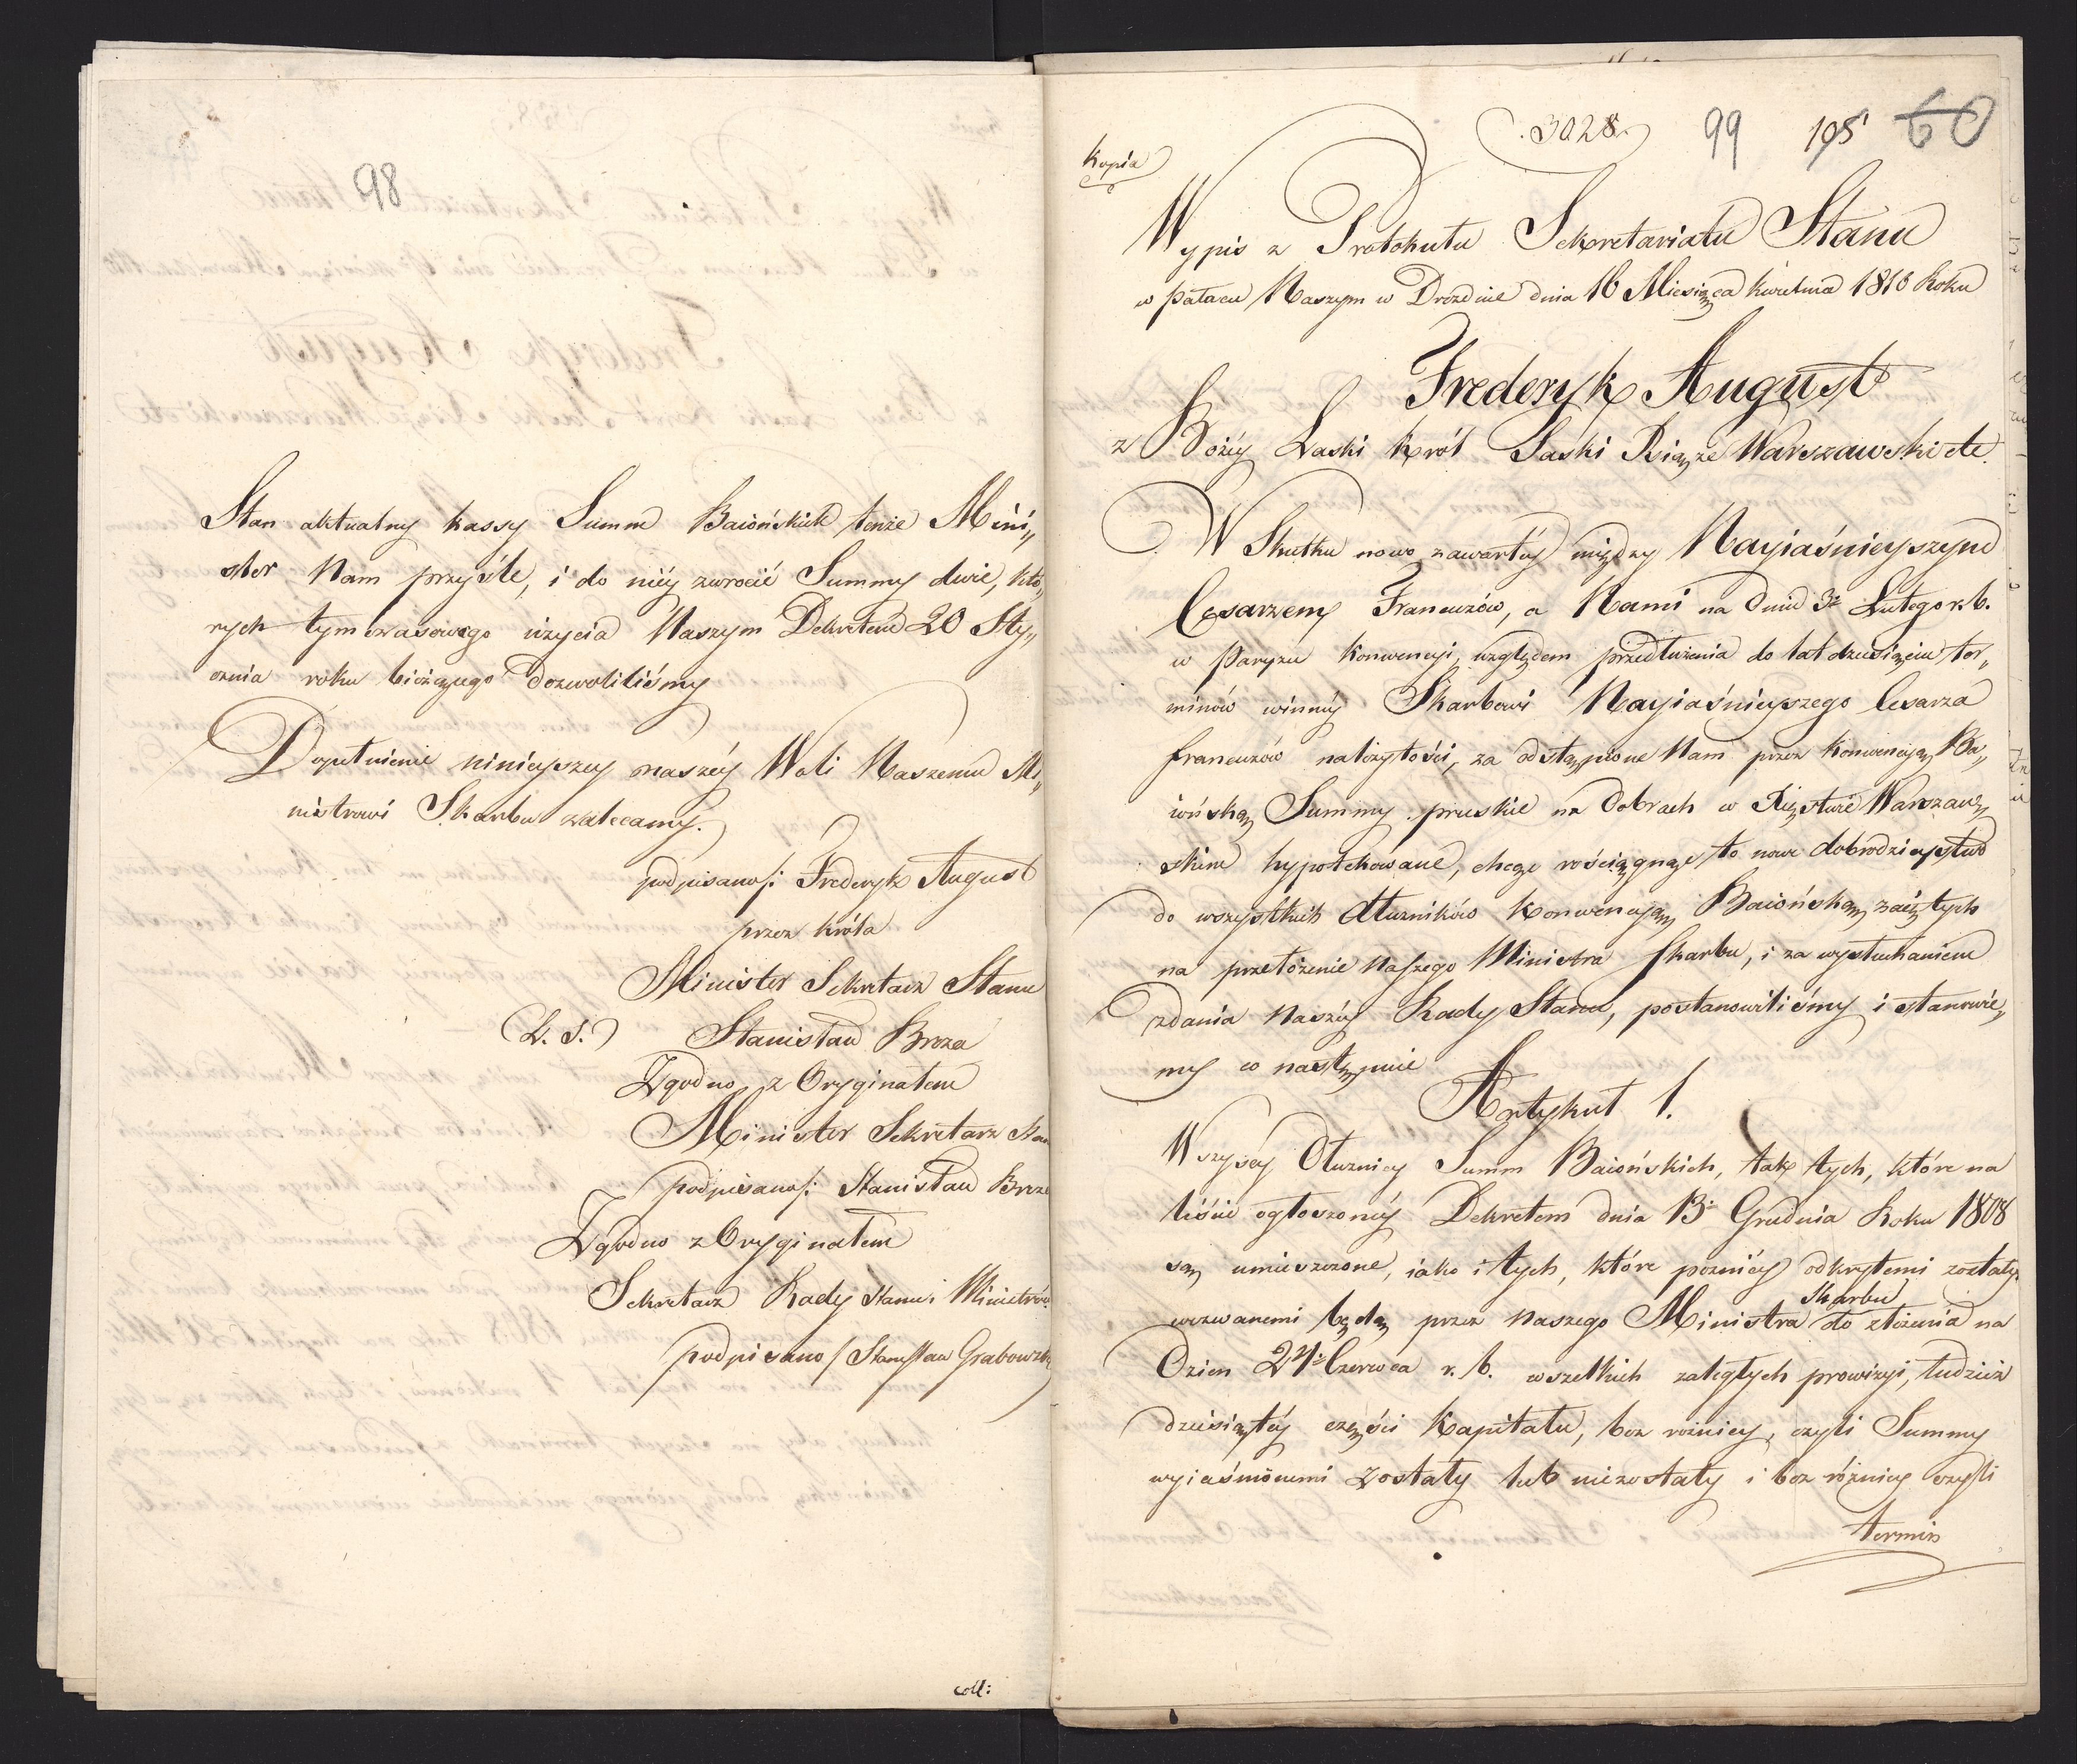 98
Stan aktualny kassy Summ Baiońskich tenże Mini„
ster Nam przyśle, i do niéy zwrocić Summy dwie, któ„
rych tymczasowego użycia Naszym Dekretem 20 Sty„
cznia roku bieżącego dozwoliliśmy
Dopełnienie ninieyszey naszéy Woli Naszemu Mi„
nistrowi Skarbu zalecamy.
podpisano/: Fryderyk August
przez Króla
Minister Sekretarz Stanu
L. S. Stanisław Breza
Zgodno z Oryginałem
Minister Sekretarz Stan
podpisano/: Stanisław Breza
Zgodno z Oryginałem
Sekretarz Rady Stanu i Ministrów
podpisano/ Stanisław Grabowski
coll:
3028. 99 105 60
Kopia
Wypis z Protokułu Sekretariatu Stanu
w Pałacu Naszym w Dreźnie dnia 16 Miesiąca Kwietnia 1810 Roku
Frederyk August
z Bożéy Łaski Król Saski Xiąże Warszawski etc.
W Skutku nowo zawartéy między Nayiaśnieyszym
Cesarzem Francuzów, a Nami na dniu 3º Lutego r. b.
w Paryzu Konwencyi, względem przedłużenia do lat dziesięciu ter„
minów winnéy Skarbowi Nayiaśnieyszego Cesarza
francuzów należytości, za odstąpione Nam przez Konwencyą Ba„
iońską Summy pruskie na Dobrach w Xięstwie Warszaw„
skim hypotekowane, chcąc rościągnąć to nowe dobrodzieystwo
do wszystkich dłużników Konwencyą Baiońską zaiętych
na przełożenie Naszego Ministra Skarbu, i za wysłuchaniem
zdania Naszéy Rady Stanu, postanowiliśmy i stanowie„
my co następuie
Artykuł 1.
Wszyscy Dłużnicy Summ Baiońskich, tak tych, które na
liście ogłoszonéy Dekretem dnia 13º Grudnia Roku 1808
są umieszczone, iako i tych, które pozniéy odkrytemi zostały
wezwanemi będą przez Naszego Ministra Skarbu do złożenia na
Dzien 24º Czerwca r. b. wszelkich zaległych prowizyi, tudzież
dziesiątéy części Kapitału, bez rożnicy, czyli Summy
wyiaśnionemi zostały lub niezostały i bez różnicy czyli
termin